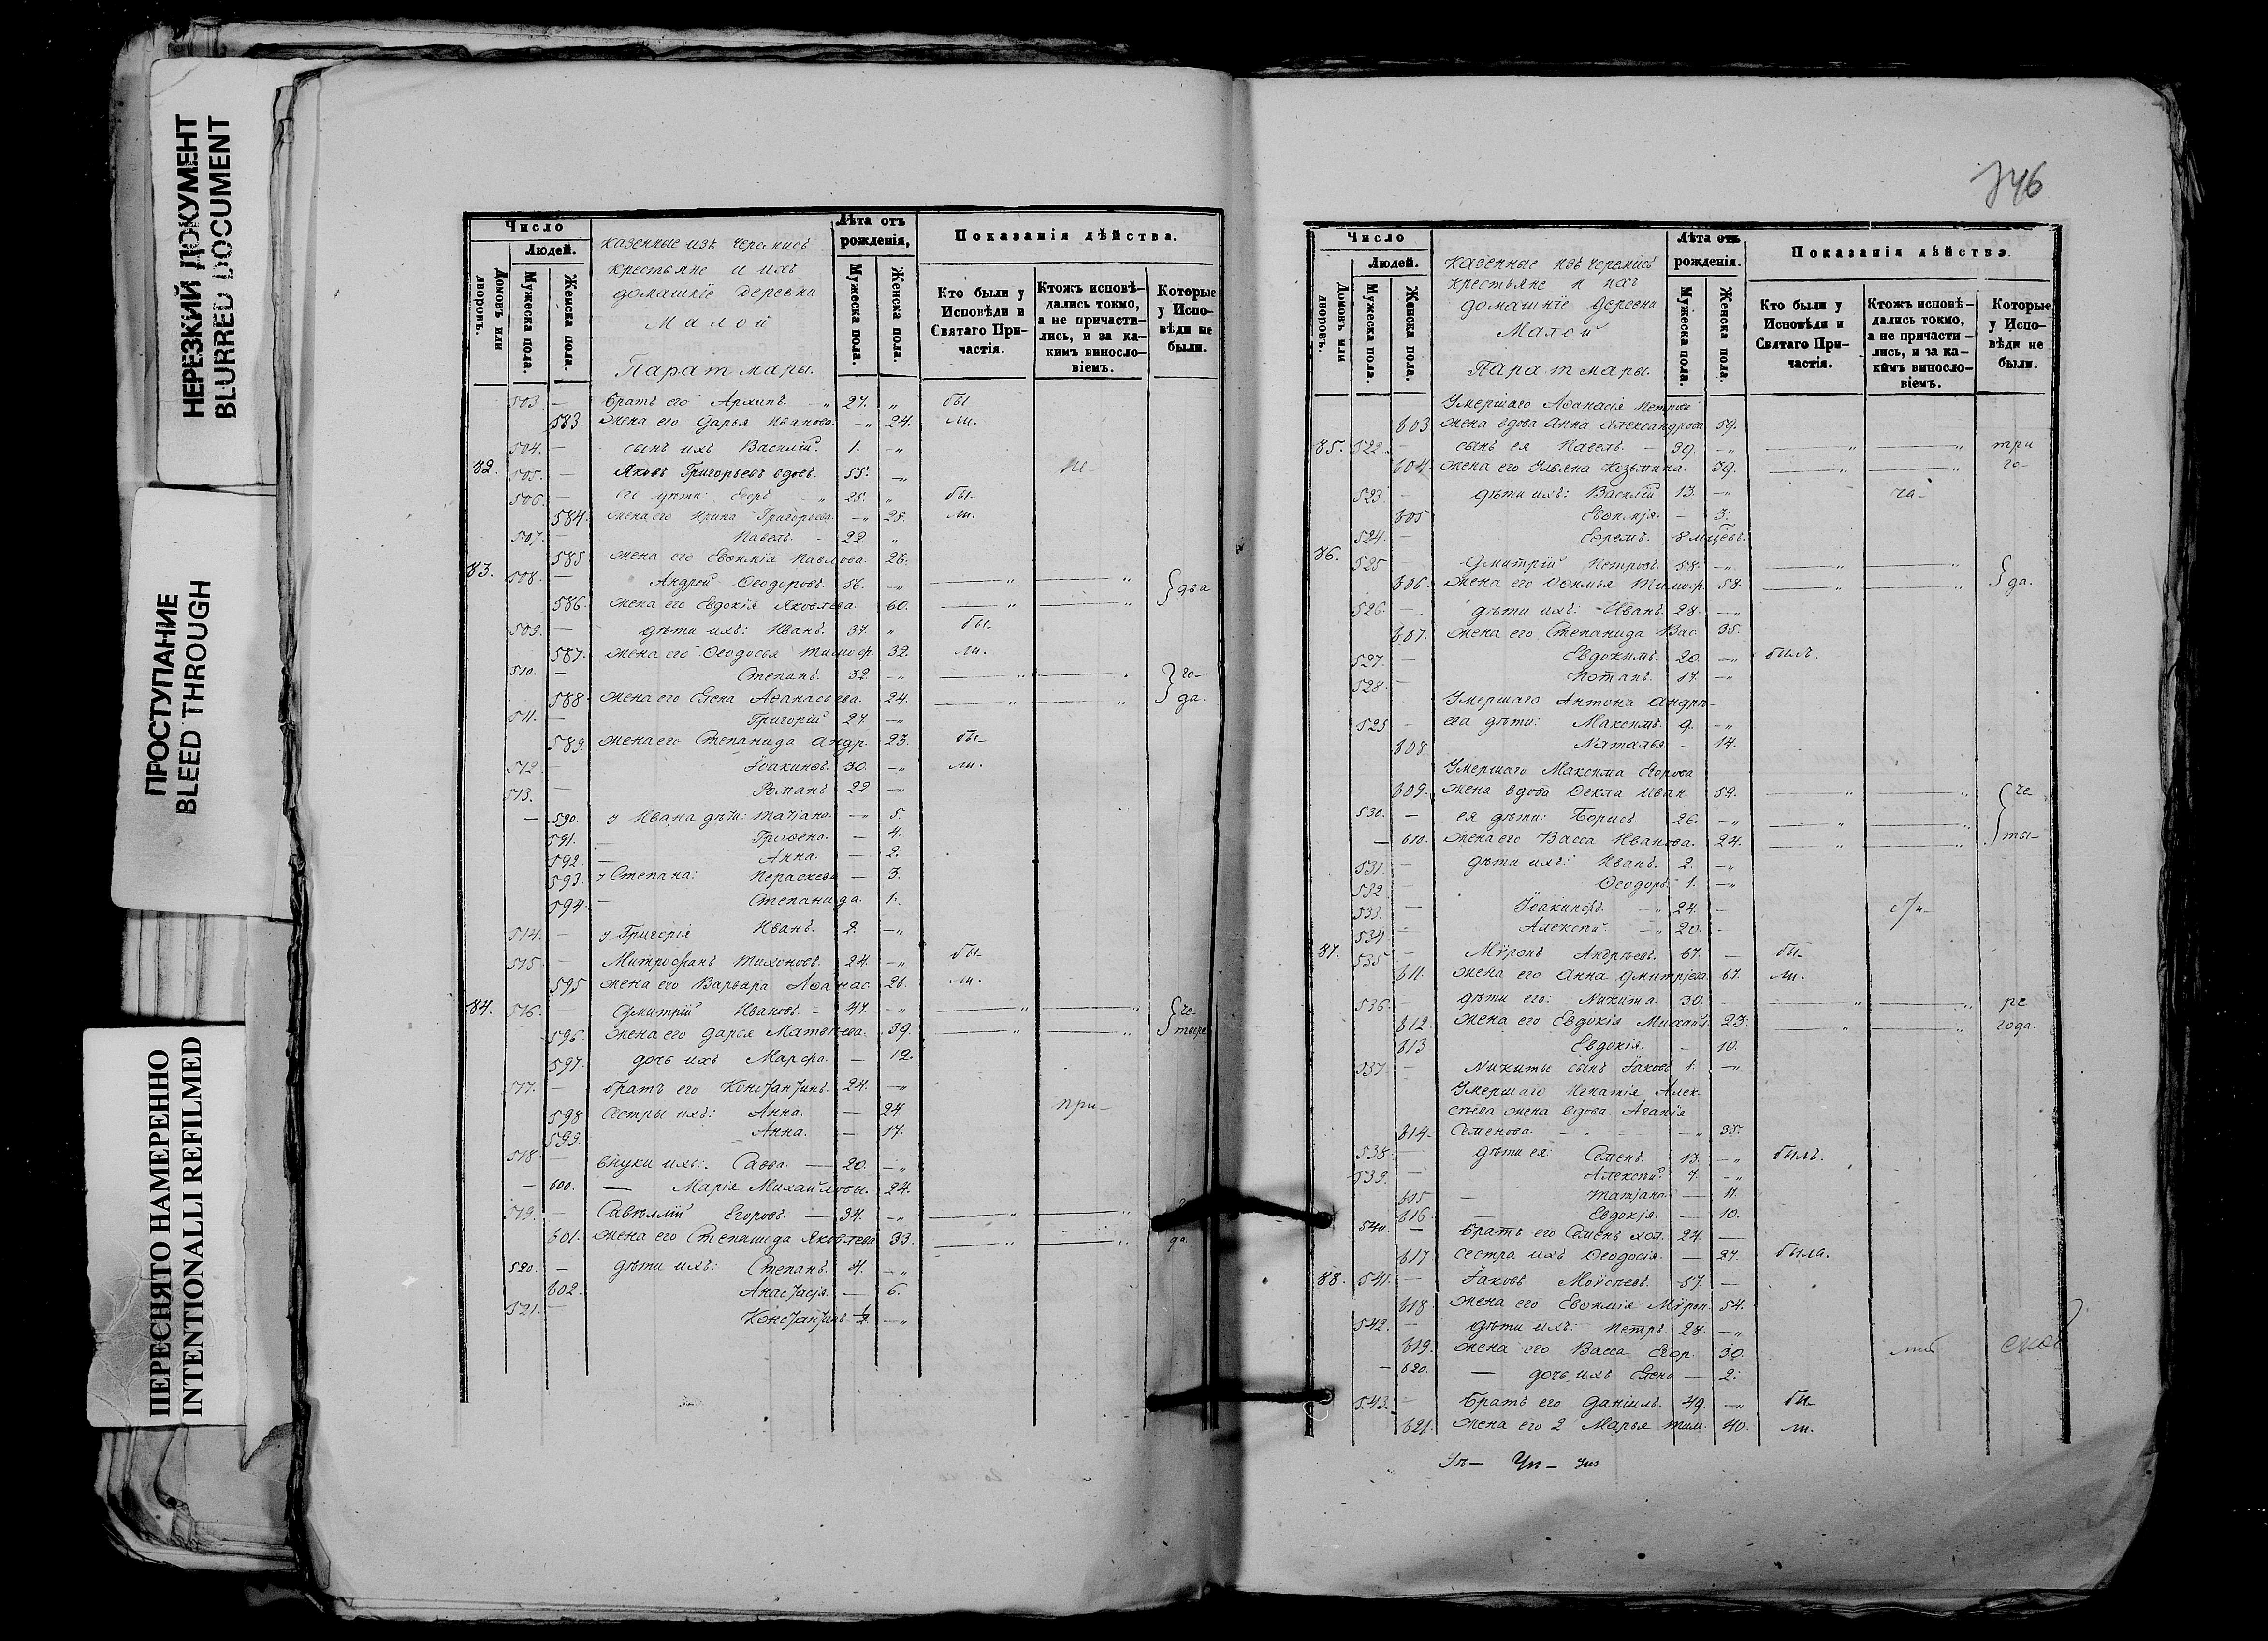 НЕРЕЗКИЙ ДОКУМЕНТ
BLURRED DOCUMENT
ПРОСТУПАНИЕ
BLEED THROUGH
ПЕРЕСНЯТО НАМЕРЕННО
INTENTIONALLI REFILMED
Число
Людей.
Домовъ или дворовъ.
Мужеска пола.
Женска пола.
казенные изъ черемисъ
крестьяне и ихъ
домашніе деревни
Малой
Паратмары.
Лѣта отъ рожденія,
Мужеска пола.
Женска пола.
Показанія дѣйства.
Кто были у Исповѣди и Святаго Причастія.
Ктожъ исповѣдались токмо, а не причастились, и за какимъ винословіемъ.
Которые у Исповѣди не были.
503. — братъ его Архипъ. — 27. „ бы
583. жена его Дарья Иванова. — 24. ли.
504. — сынъ ихъ Василій. 1. „
82. 505. — Яковъ Григорьевъ вдовъ. 55. „ не
506. — его дѣти: Егоръ. 25. „ бы-
584. жена его Ирина Григорьева. — 25. ли.
507. — Павелъ. 22. „
585 жена его Евѳимія Павлова. 26.
83. 508. — Андрей Ѳеодоровъ. 56. „ — „ — „ два
586. жена его Евдокія Яковлева. 60. — „ — „
509. — дѣти ихъ: Иванъ. 37. „ бы-
587. жена его Ѳеодосья Тимоѳ. 32. ли.
510. — Степанъ. 32. „ — „ — „ го-
588. жена его Елена Аѳанасьева. 24. — „ — „ да.
511. — Григорій 27. „
589. жена его Степанида Андр. 23. бы-
512. — Іоакимъ. 30. „ ли.
513. — Романъ 22 „
— 590. у Ивана дѣти: Татіана. — 5.
591. — Грипена. — 4.
592. — Анна. — 2.
593. у Степана: Пераскева — 3.
594. — Степанида. 1.
514. — у Григорія Иванъ. 2. „
515. — Митрофанъ Тихоновъ. 24. „ бы-
595 жена его Варвара Аѳанас. 26. ли.
84. 516. — Дмитрій Ивановъ. 47. „ — „ — „ че-
596. жена его Дарья Матвѣева. 39. — „ — „ тыре
597. дочь ихъ Марѳа. — 12.
517. — братъ его Константинъ. 24. „
598 сестры ихъ: Анна. — 24. при-
599. Анна. — 17.
518 — внуки ихъ: Савва. — 20. „
— 600. — Марія Михайловы. 24.
519. — Савеллій Егоровъ. — 34. „ — „ — „
601. жена его Степанида Яковлева 33. — „ — „ да.
520. — дѣти ихъ: Степанъ. 4. „
602. Анастасія. — 6.
521. — Константинъ ½. „
746
Число
Людей.
Домовъ или дворовъ.
Мужеска пола.
Женска пола.
казенные изъ черемисъ
крестьяне и ихъ
домашніе деревни
Малой
Паратмары.
Лѣта отъ рожденія.
Мужеска пола.
Женска пола.
Показанія дѣйства.
Кто были у Исповѣди и Святаго Причастія.
Ктожъ исповѣдались токмо, а не причастились, и за какимъ винословіемъ.
Которые у Исповѣди не были.
Умершаго Аѳанасія Петрова
603 жена вдова Анна Александрова 59.
85. 522. — сынъ ея Павелъ. — 39. „ — „ — „ три
604. жена его Ульяна Козьмина. 39. — „ — „ го-
523. — дѣти ихъ: Василій 13. „ ча-
605 Евѳимія. — 3.
524. — Ефремъ. 8 мѣцевъ.
86. 525 Дмитрій Петровъ. 58. „ — „ — „ да.
606. жена его Ѳ Тимоѳ. 58. — „ — „
526. — дѣти ихъ: Иванъ. 28. „
607. жена его Степанида Вас. 35.
527. — Евдокимъ. 20. „ былъ.
528. — Потапъ. 17. „
Умершаго Антона Андрѣ-
525 — ева дѣти: Максимъ. 9. „
608 Наталья — 14.
Умершаго Максима Егорова
609. жена вдова Ѳекла Иван. 59. — „ — „ че
530. — ея дѣти: Борисъ. 26. „ — „ — „
— 610. жена его Васса Иванова. 24. — „ — „ ты-
531. — дѣти ихъ: Иванъ. 2. „
532. — Ѳеодоръ. 1. „
533. — Іоакимъ. 24. —
534 — Алексѣй. 20. —
87. 535 Мѵронъ Андрѣевъ. 67. — бы-
611. жена его Анна Дмитріева 67. ли.
536. — дѣти его: Никита. 30. — — „ — „ ре
612. жена его Евдокія Михайл. 23. — „ — „ года.
613 Евдокія. — 10.
537 — Никиты сынъ Іаковъ 1. „
Умершаго Игнатія Алек-
сѣева жена вдова Агапія
614. Семенова. „ 35.
538. — дѣти ея: Семенъ. 13. „ былъ.
539. — Алексѣй. 7. „
615 — Татіана. — 11.
616. — Евдокія. — 10.
540. — братъ его Семенъ хол. 24. —
617. сестра ихъ Ѳеодосія. — 27. была.
88. 541. — Іаковъ Моѵсѣевъ. 57. —
618. жена его Евѳимія Мѵрон. 54.
542. — дѣти ихъ: Петръ. 28. „
619. жена его Васса Егор. 30.
— 620. — дочь ихъ Елена — 2.
543. — братъ его Даніилъ. 49. „ бы-
621. жена его 2 Марья Тим. 40. ли.